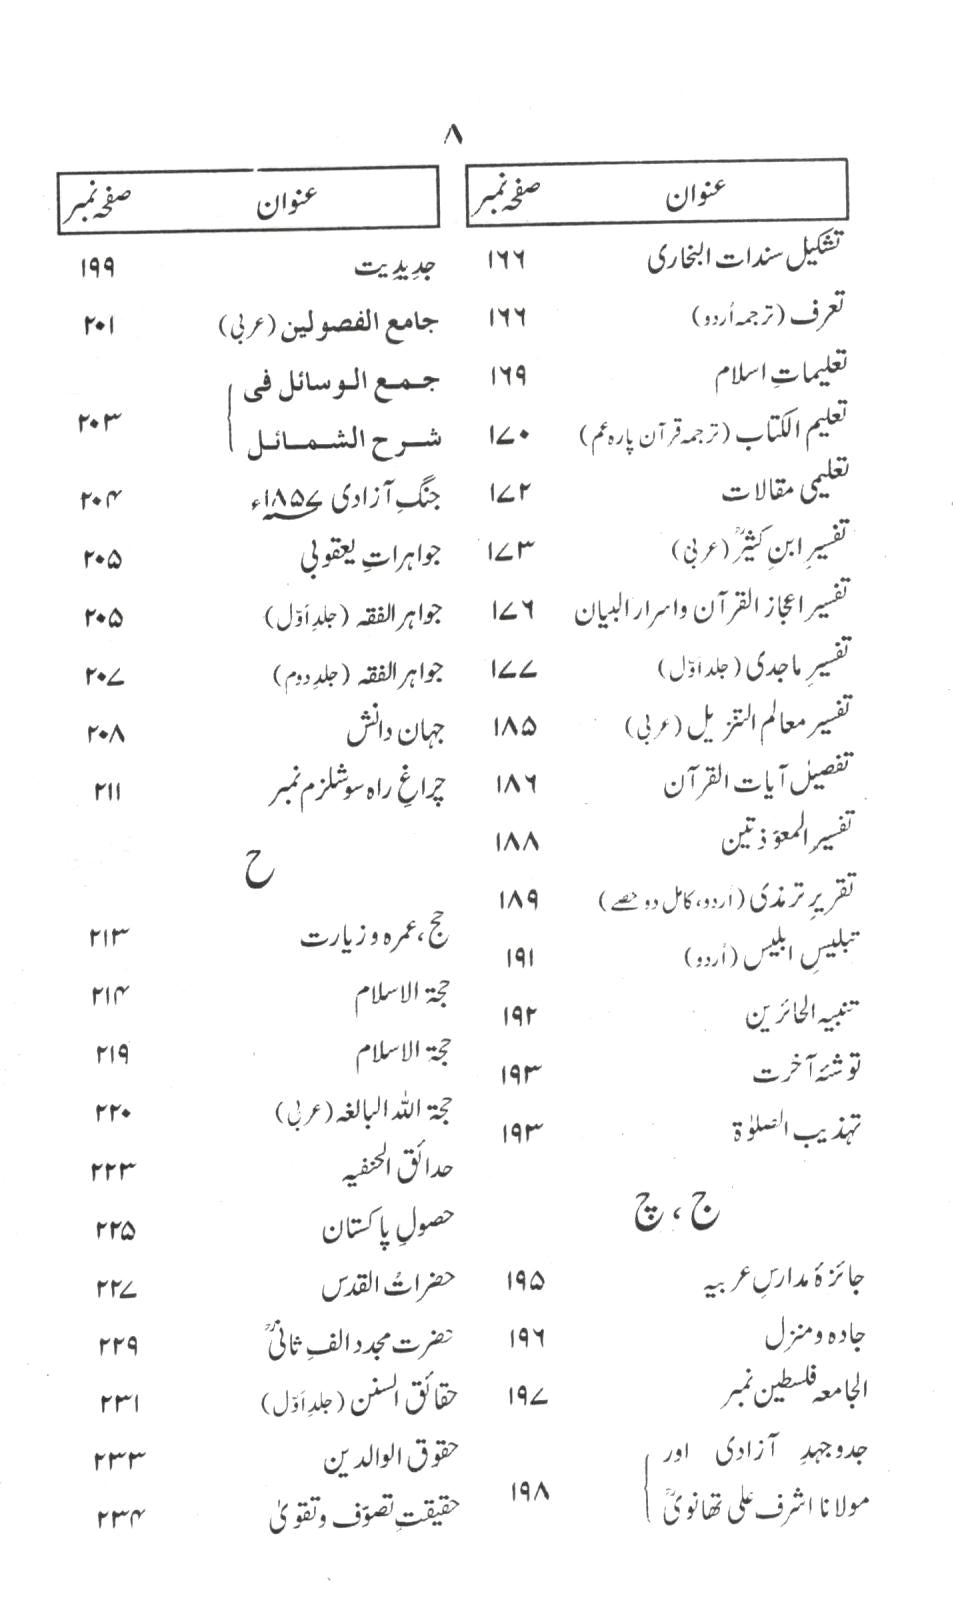 ۸
عنوان صفحہ نمبر
تشکیل سندات البخاری ۱۶۶
تعرف (ترجمہ اُردو) ۱۶۶
تعلیماتِ اسلام ۱۶۹
تعلیم الکتاب (ترجمہ قرآن پارہ عم) ۱۷۰
تعلیمی مقالات ۱۷۲
تفسیرِ ابنِ کثیرؒ (عربی) ۱۷۳
تفسیر اعجاز القرآن واسرار البیان ۱۷۶
تفسیرِ ماجدی (جلد اوّل) ۱۷۷
تفسیر معالم التنزیل (عربی) ۱۸۵
تفصیل آیات القرآن ۱۸۶
تفسیر المعوّذتین ۱۸۸
تقریرِ ترمذی (اُردو، کامل دو حصے) ۱۸۹
تبلیسِ ابلیس (اُردو) ۱۹۱
تنبیہ الحائرین ۱۹۲
توشۂ آخرت ۱۹۳
تہذیب الصلوٰة ۱۹۳
ج ، چ
جائزۂ مدارسِ عربیہ ۱۹۵
جادہ و منزل ۱۹۶
الجامعہ فلسطین نمبر ۱۹۷
جدوجہدِ آزادی اور
مولانا اشرف علی تھانویؒ ۱۹۸
عنوان صفحہ نمبر
جدیدیت ۱۹۹
جامع الفصولین (عربی) ۲۰۱
جمع الوسائل فی
شرح الشمائل ۲۰۳
جنگِ آزادی ۱۸۵۷ء ۲۰۴
جواہراتِ یعقوبی ۲۰۵
جواہر الفقہ (جلدِ اوّل) ۲۰۵
جواہر الفقہ (جلدِ دوم) ۲۰۷
جہان دانش ۲۰۸
چراغِ راہ سوشلزم نمبر ۲۱۱
ح
حج، عمرہ و زیارت ۲۱۳
حجۃ الاسلام ۲۱۴
حجۃ الاسلام ۲۱۹
حجۃ اللہ البالغہ (عربی) ۲۲۰
حدائق الحنفیہ ۲۲۳
حصولِ پاکستان ۲۲۵
حضراتُ القدس ۲۲۷
حضرت مجدد الفِ ثانیؒ ۲۲۹
حقائق السنن (جلدِ اوّل) ۲۳۱
حقوق الوالدین ۲۳۳
حقیقتِ تصوّف و تقویٰ ۲۳۴